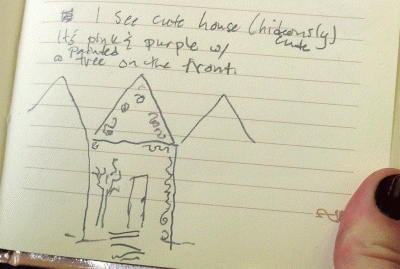 I see cute house (hideously)
cute
It's pink & purple w/
painted
a tree on the front.